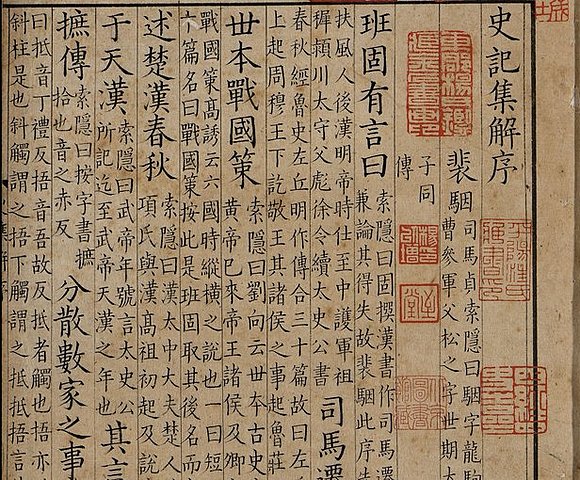 史記集解序
裴駰
司馬貞索隱曰駰字龍駒
曹參軍父松之字世期太
子同
傳
班固有言曰
索隱曰固撰漢書作司馬遷
兼論其得失故裴駰此序先
扶風人後漢明帝時仕至中護軍祖
穉潁川太守父彪徐令續太史公書
司馬遷
春秋經魯史左丘明作傳合三十篇故曰左
上起周穆王下訖敬王其諸侯之事起魯莊
世本戰國策
索隱曰劉向云世本古史
黃帝已來帝王諸侯及卿
戰國策高誘云六國時縱橫之說也一曰短
篇名曰戰國策按此是班固取其後名而
述楚漢春秋
索隱曰漢太中大夫楚人
項氏與漢高祖初起及說
于天漢
索隱曰武帝年號言太史公
所記迄至武帝天漢之年也
其言
摭傳
索隱曰按字書摭
拾也音之赤反
分散數家之事
曰抵音丁禮反捂音吾故反抵者觸也捂亦
斜柱是也斜觸謂之捂下觸謂之抵抵捂言